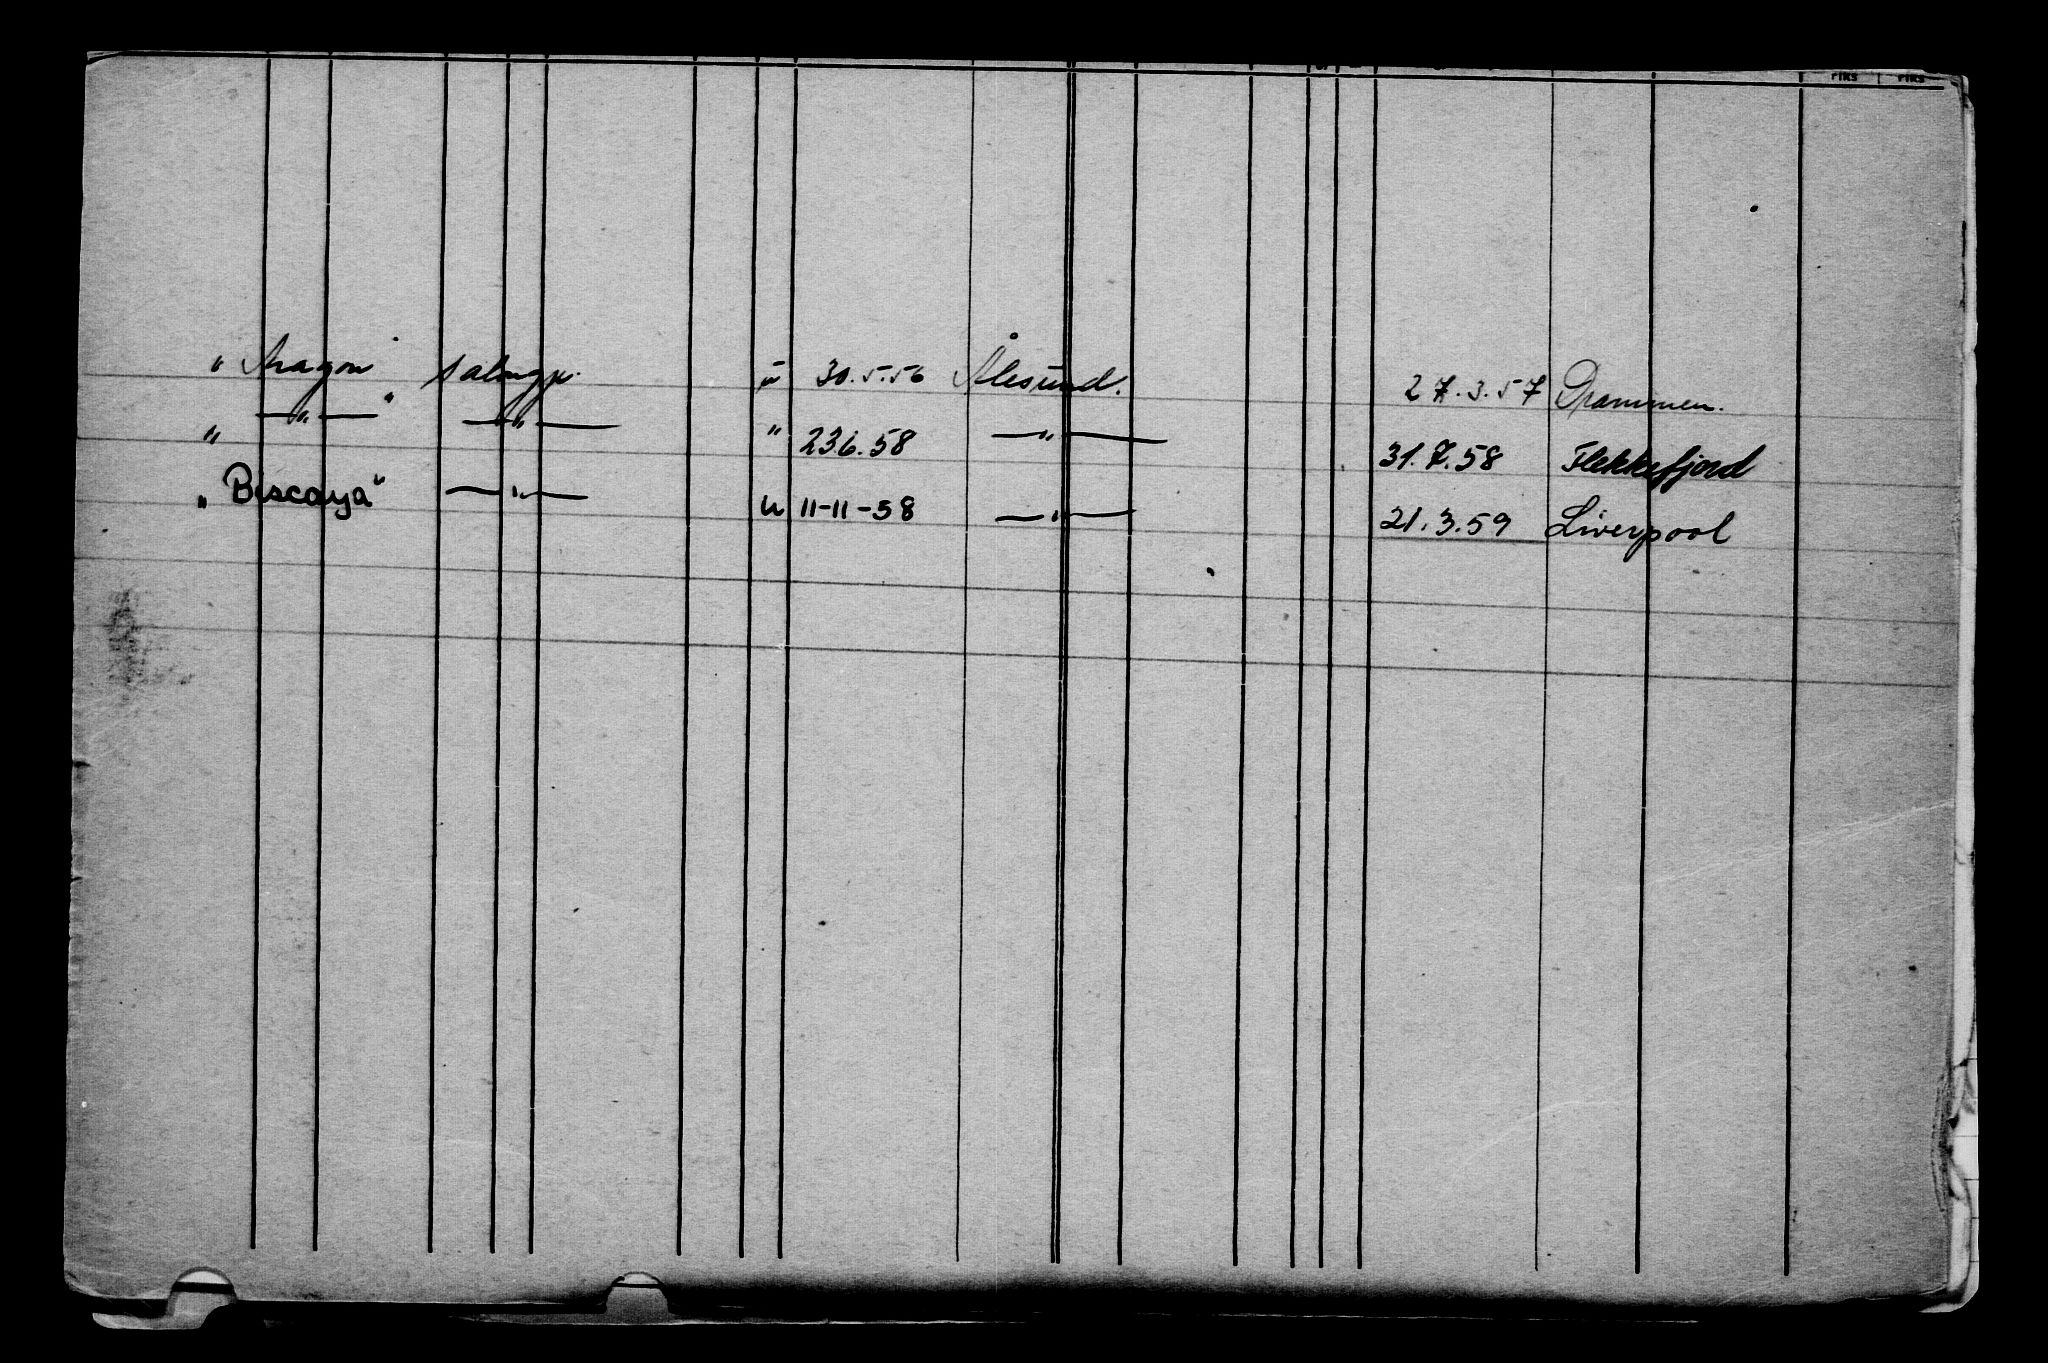 FIKS FIKS
"Aragon" salongp. u 30.5.56 Ålesund. 27.3.57 Drammen.
" —"— " —"— " 23.6.58 —"— 31.7.58 Flekkefjord
"Biscaya" —"— u 11-11-58 —"— 21.3.59 Liverpool